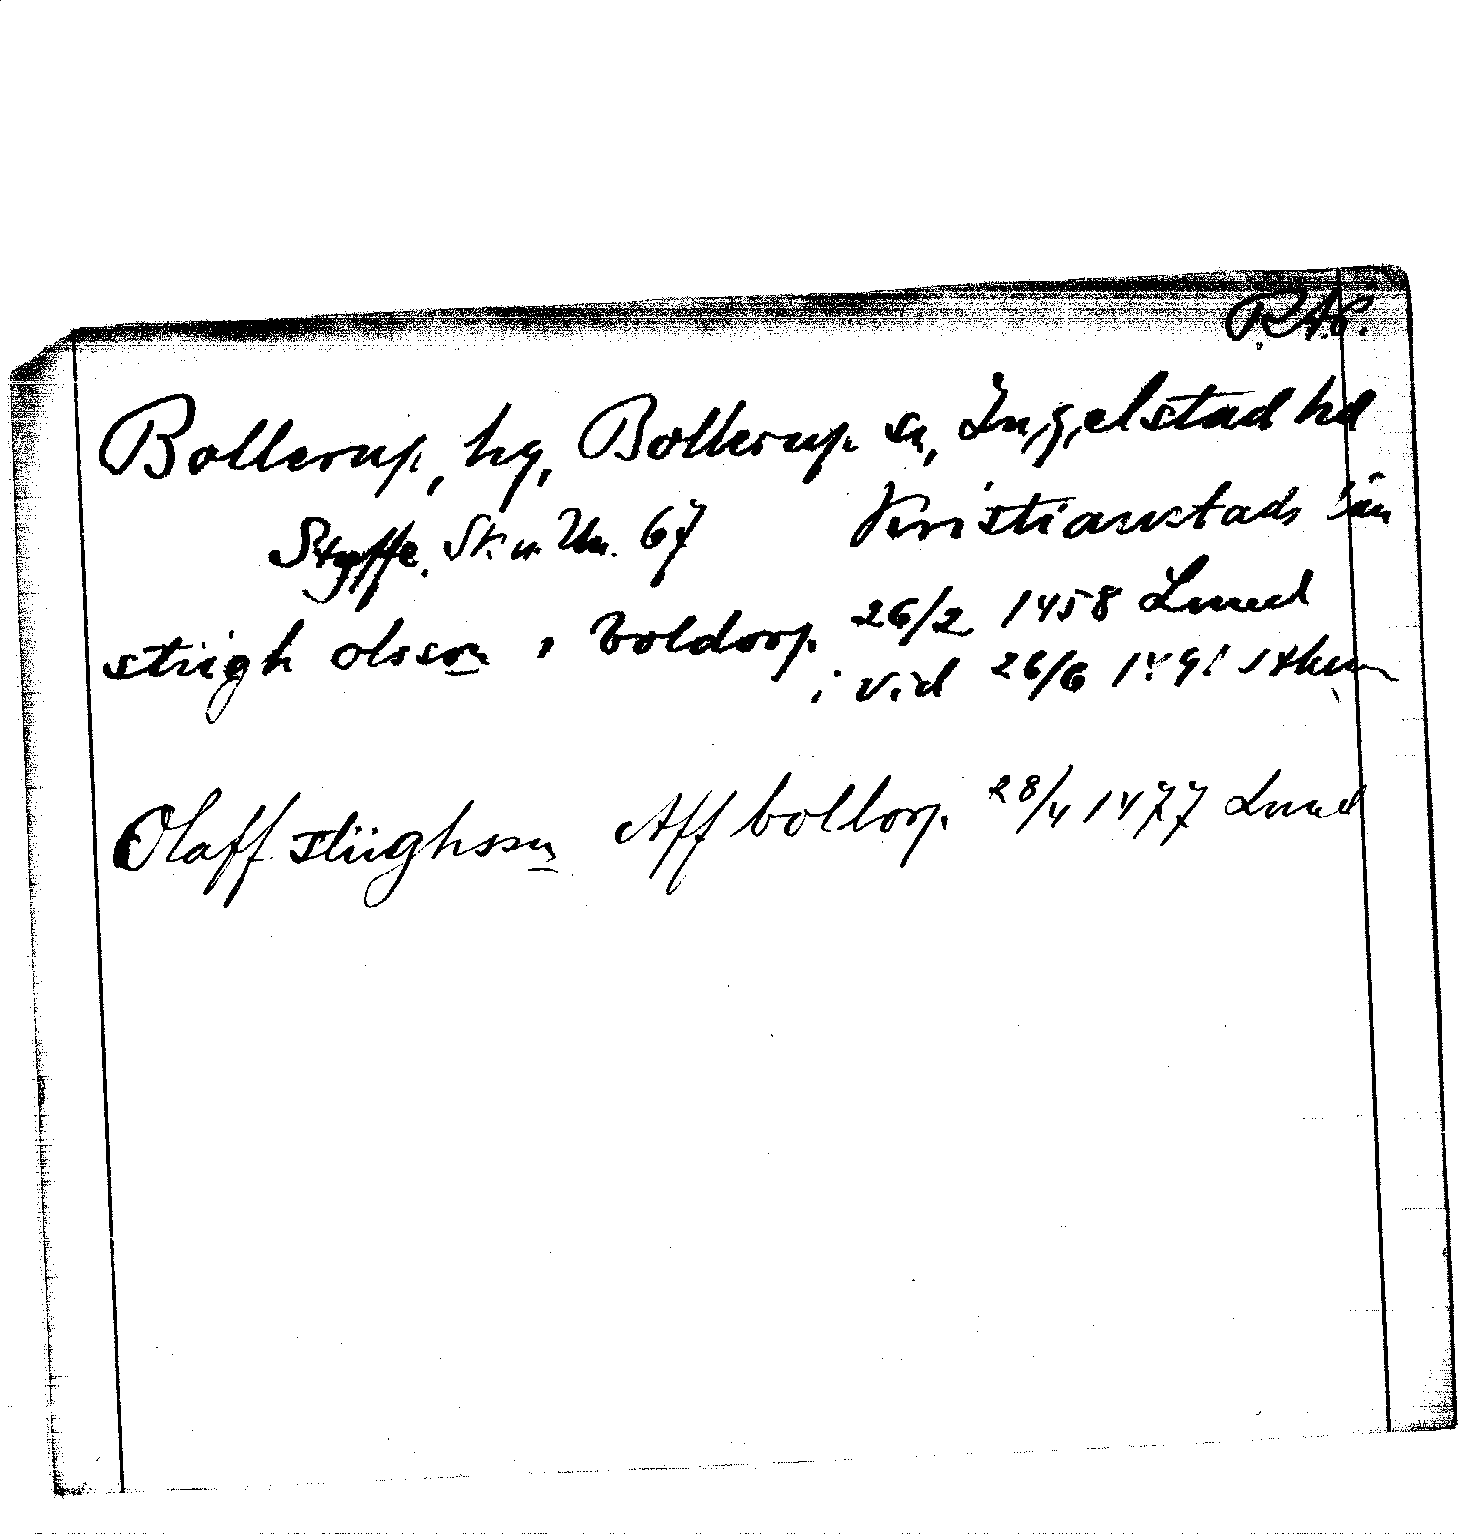 R.A.
Bollerup, hg, Bollerup sn, Ingelstad hd
Styffe. Sk. u. Un. 67 Kristianstads län
stiigh olsson i boldorp 26/2 1458 Lund
i vid 26/6 1491 Sthm
Olaff stiighssn Aff boltorp 28/4 1477 Lund